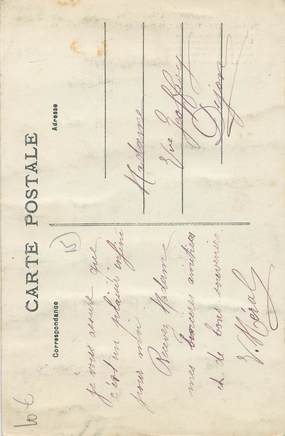 CARTE POSTALE
Correspondance
Adresse
15
je vous assure que
c'est un plaisir enfin
pour moi
Recevez Madame
mes sincères amitiés
et de bons souvenirs
V. Méral
Madame
Vve
Dijon
10 €